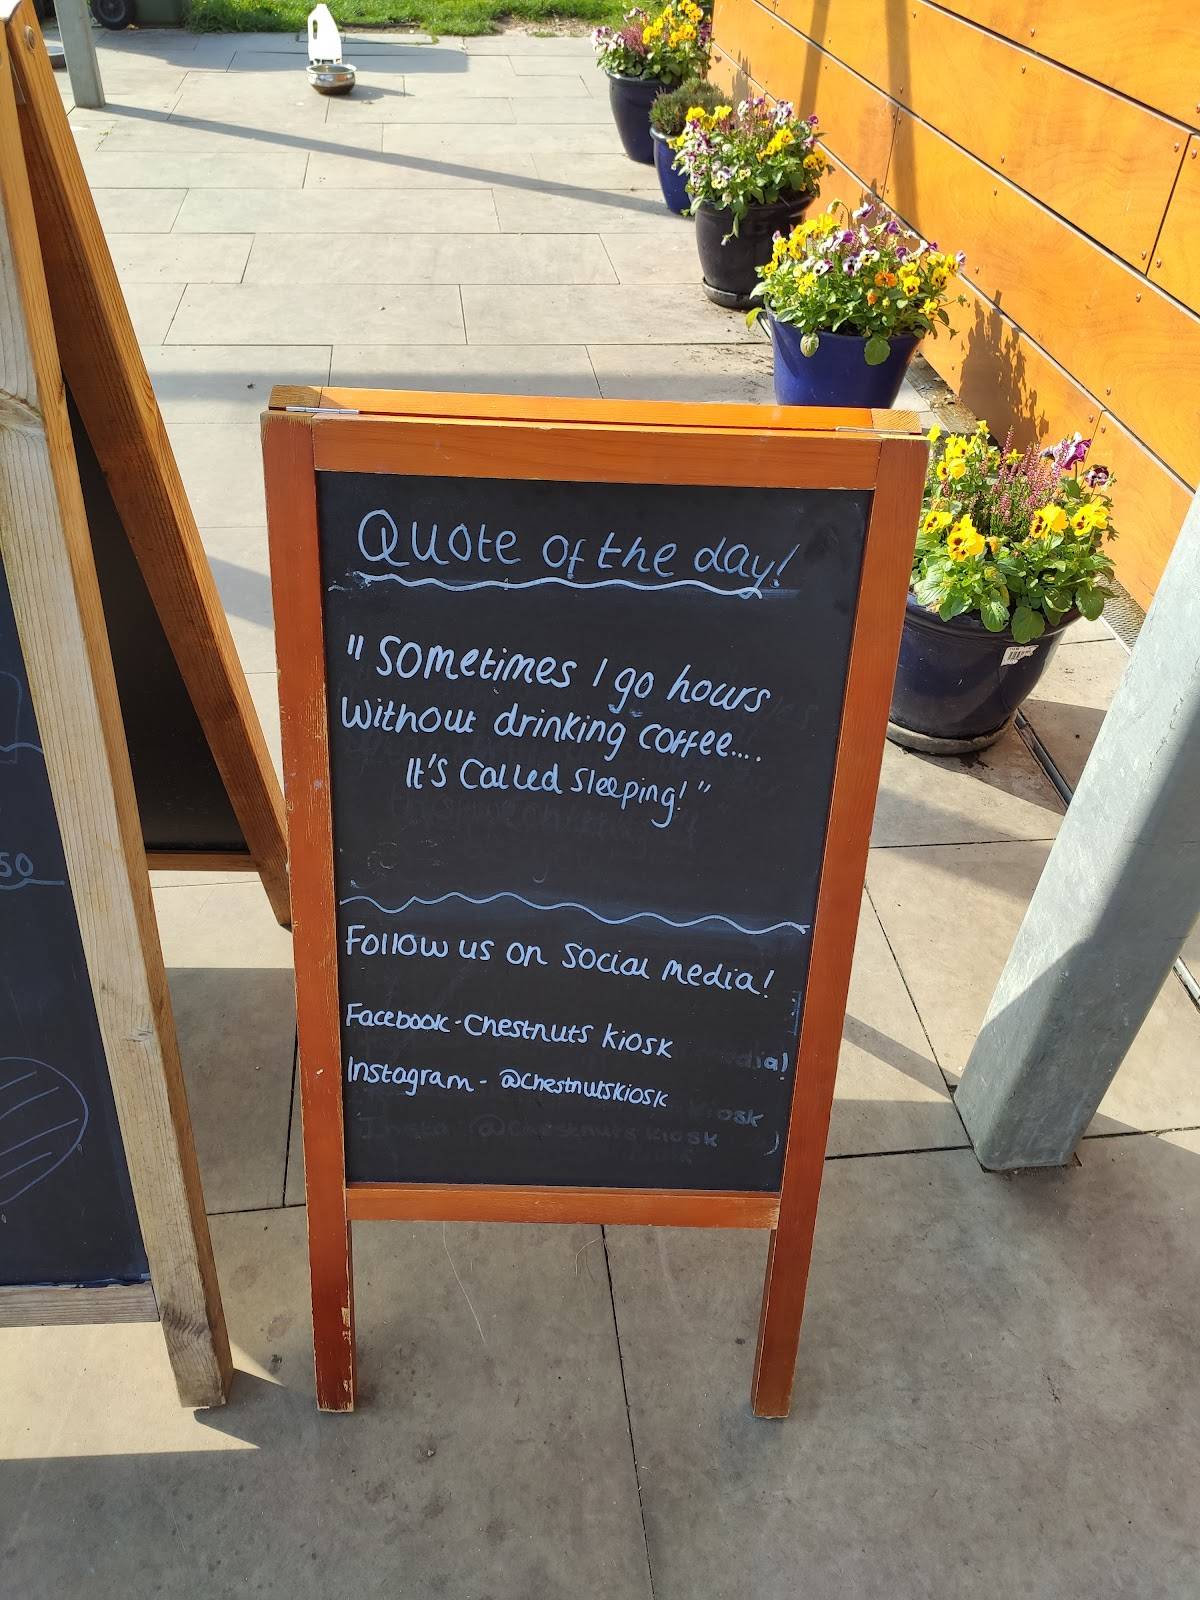 Quote of the day!
" Sometimes I go hours
Without drinking coffee....
It's Called Sleeping! "
Follow us on social media!
Facebook - Chestnuts kiosk
Instagram - @chestnutskiosk
kiosk
Insta @chestnuts kiosk
50